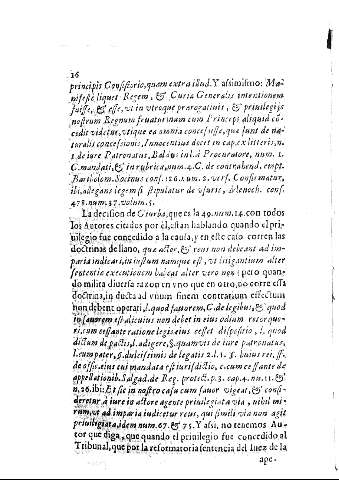 16
principis Consistorio, quam extra illud. Y assimismo: Ma-
nifeste liquet Regem, & Curia Generalis intentionem
fuisse, & esse, vt in vtroque prorogatiuis, & priuilegijs
nostrum Regnum fruatur nam cum Princeps aliquid cõ-
cedit videtur, vtique ea omnia concessisse, quæ sunt de na-
turalis concessionis, Innocentius docet in cap. ex litteris, n.
1. de iure Patronatus, Baldus in l. à Procuratore, num. 1.
C. mandati, & in rubrica, num. 4. C. de contrahend. empt.
Bartholom. Socinus cons. 126. num. 2. vers. Confirmatur,
ibi, allegans legem si stipulatur de vsuris, & Ienech. cons.
478. num. 37. volum. 5.
La decision de Giurba, que es la 49. num. 14. con todos
los Autores citados por èl, estàn hablando quando el pri-
uilegio fue concedido a la causa, y en este caso corren las
doctrinas de llano, que actor, & reus non debeant ad im-
paria indicari, iniustum namque est, vt litigantium alter
sententiæ executionem habeat alter vero non: pero quan-
do milita diuersa razon en vno que en otro, no corre essa
doctrina, inducta ad vnum finem contrarium effectum
non debent operari, l. quod fauorem, C. de legibus, & quod
in fauorem est alicuius non debet in eius odium retorque-
ri, cum cessante ratione legis eius cesset dispositio, l. quod
dictum de pactis, l. adigere, §. quamuis de iure patronatus,
l. cum pater, §. dulcissimis de legatis 2. l. 1. §. huius rei, ff.
de offic. eius cui mandata est iurisdictio, cum cessante de
appellationib. Salgad. de Reg. protect. p. 3. cap. 4. nu. 11. &
n. 26. ibi: Et sic in nostro casu cum fauor vigeat, & consi-
deretur à iure in actore agente priuilegiata via, nihil mi-
rum, vt ad imparia iudicetur reus, qui simili via non agit
priuilegiata idem num. 67. & 75. Y assi, no tenemos Au-
tor que diga, que quando el priuilegio fue concedido al
Tribunal, que por la reformatoria sentencia del Iuez de la
ape-